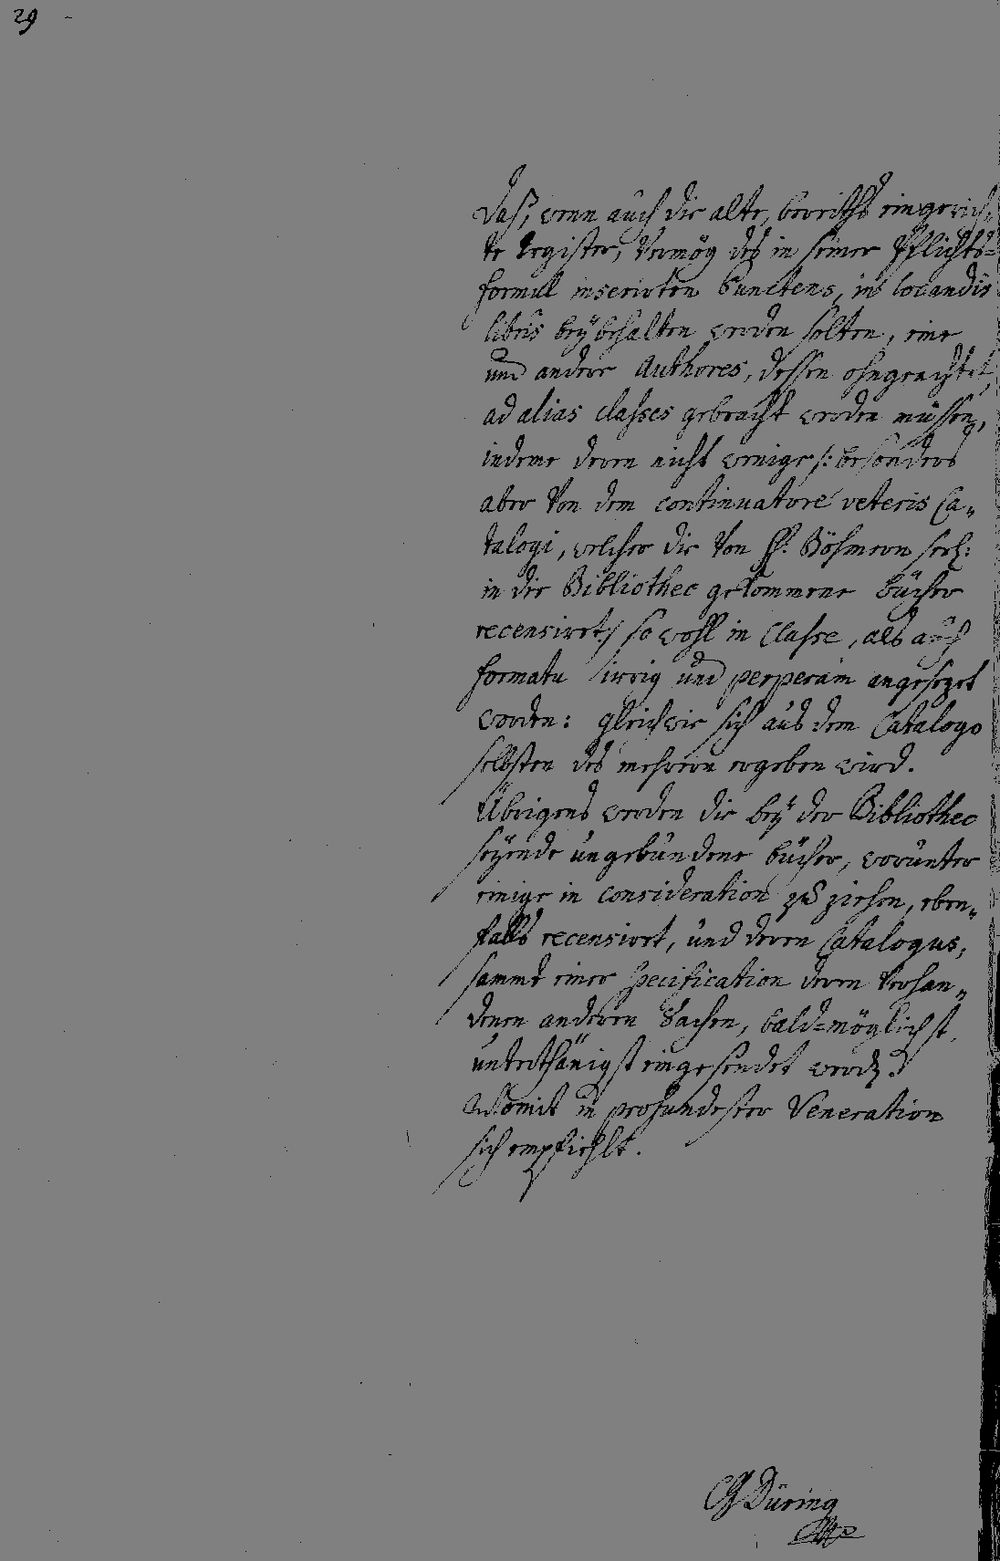 29
Daß, wenn auch die alte, bereiths eingerich-
te Register, Vermög des in seiner Pflichts-
formul inserirten Punctens, in locandis
libris beÿbehalten werden solten, eine
und andere Authores, dessen ohngeachtet,
ad alias classes gebracht werden müssen,
indeme deren nicht wenige /: besonders
aber von dem continuatore veteris Ca-
talogi, welcher die von H. Böhmern seel:
in die Bibliothec gekommene Bücher
recensirt :/ so wohl in Classe, als auch
formatu irrig und perperàm angesezet
worden: gleichwie sich aus dem Catalogo
selbsten des mehrern ergeben wird.
Übrigens werden die beÿ der Bibliothec
seÿende ungebundene Bücher, worunter
einige in consideration zu ziehen, eben-
falls recensirt, und deren Catalogus,
sammt einer Specification deren vorhan-
denen anderen Sachen, bald-möglichst,
unterthänigst eingesendet werden.
Womit in profundester Veneration
sich empfiehlt.
Düring